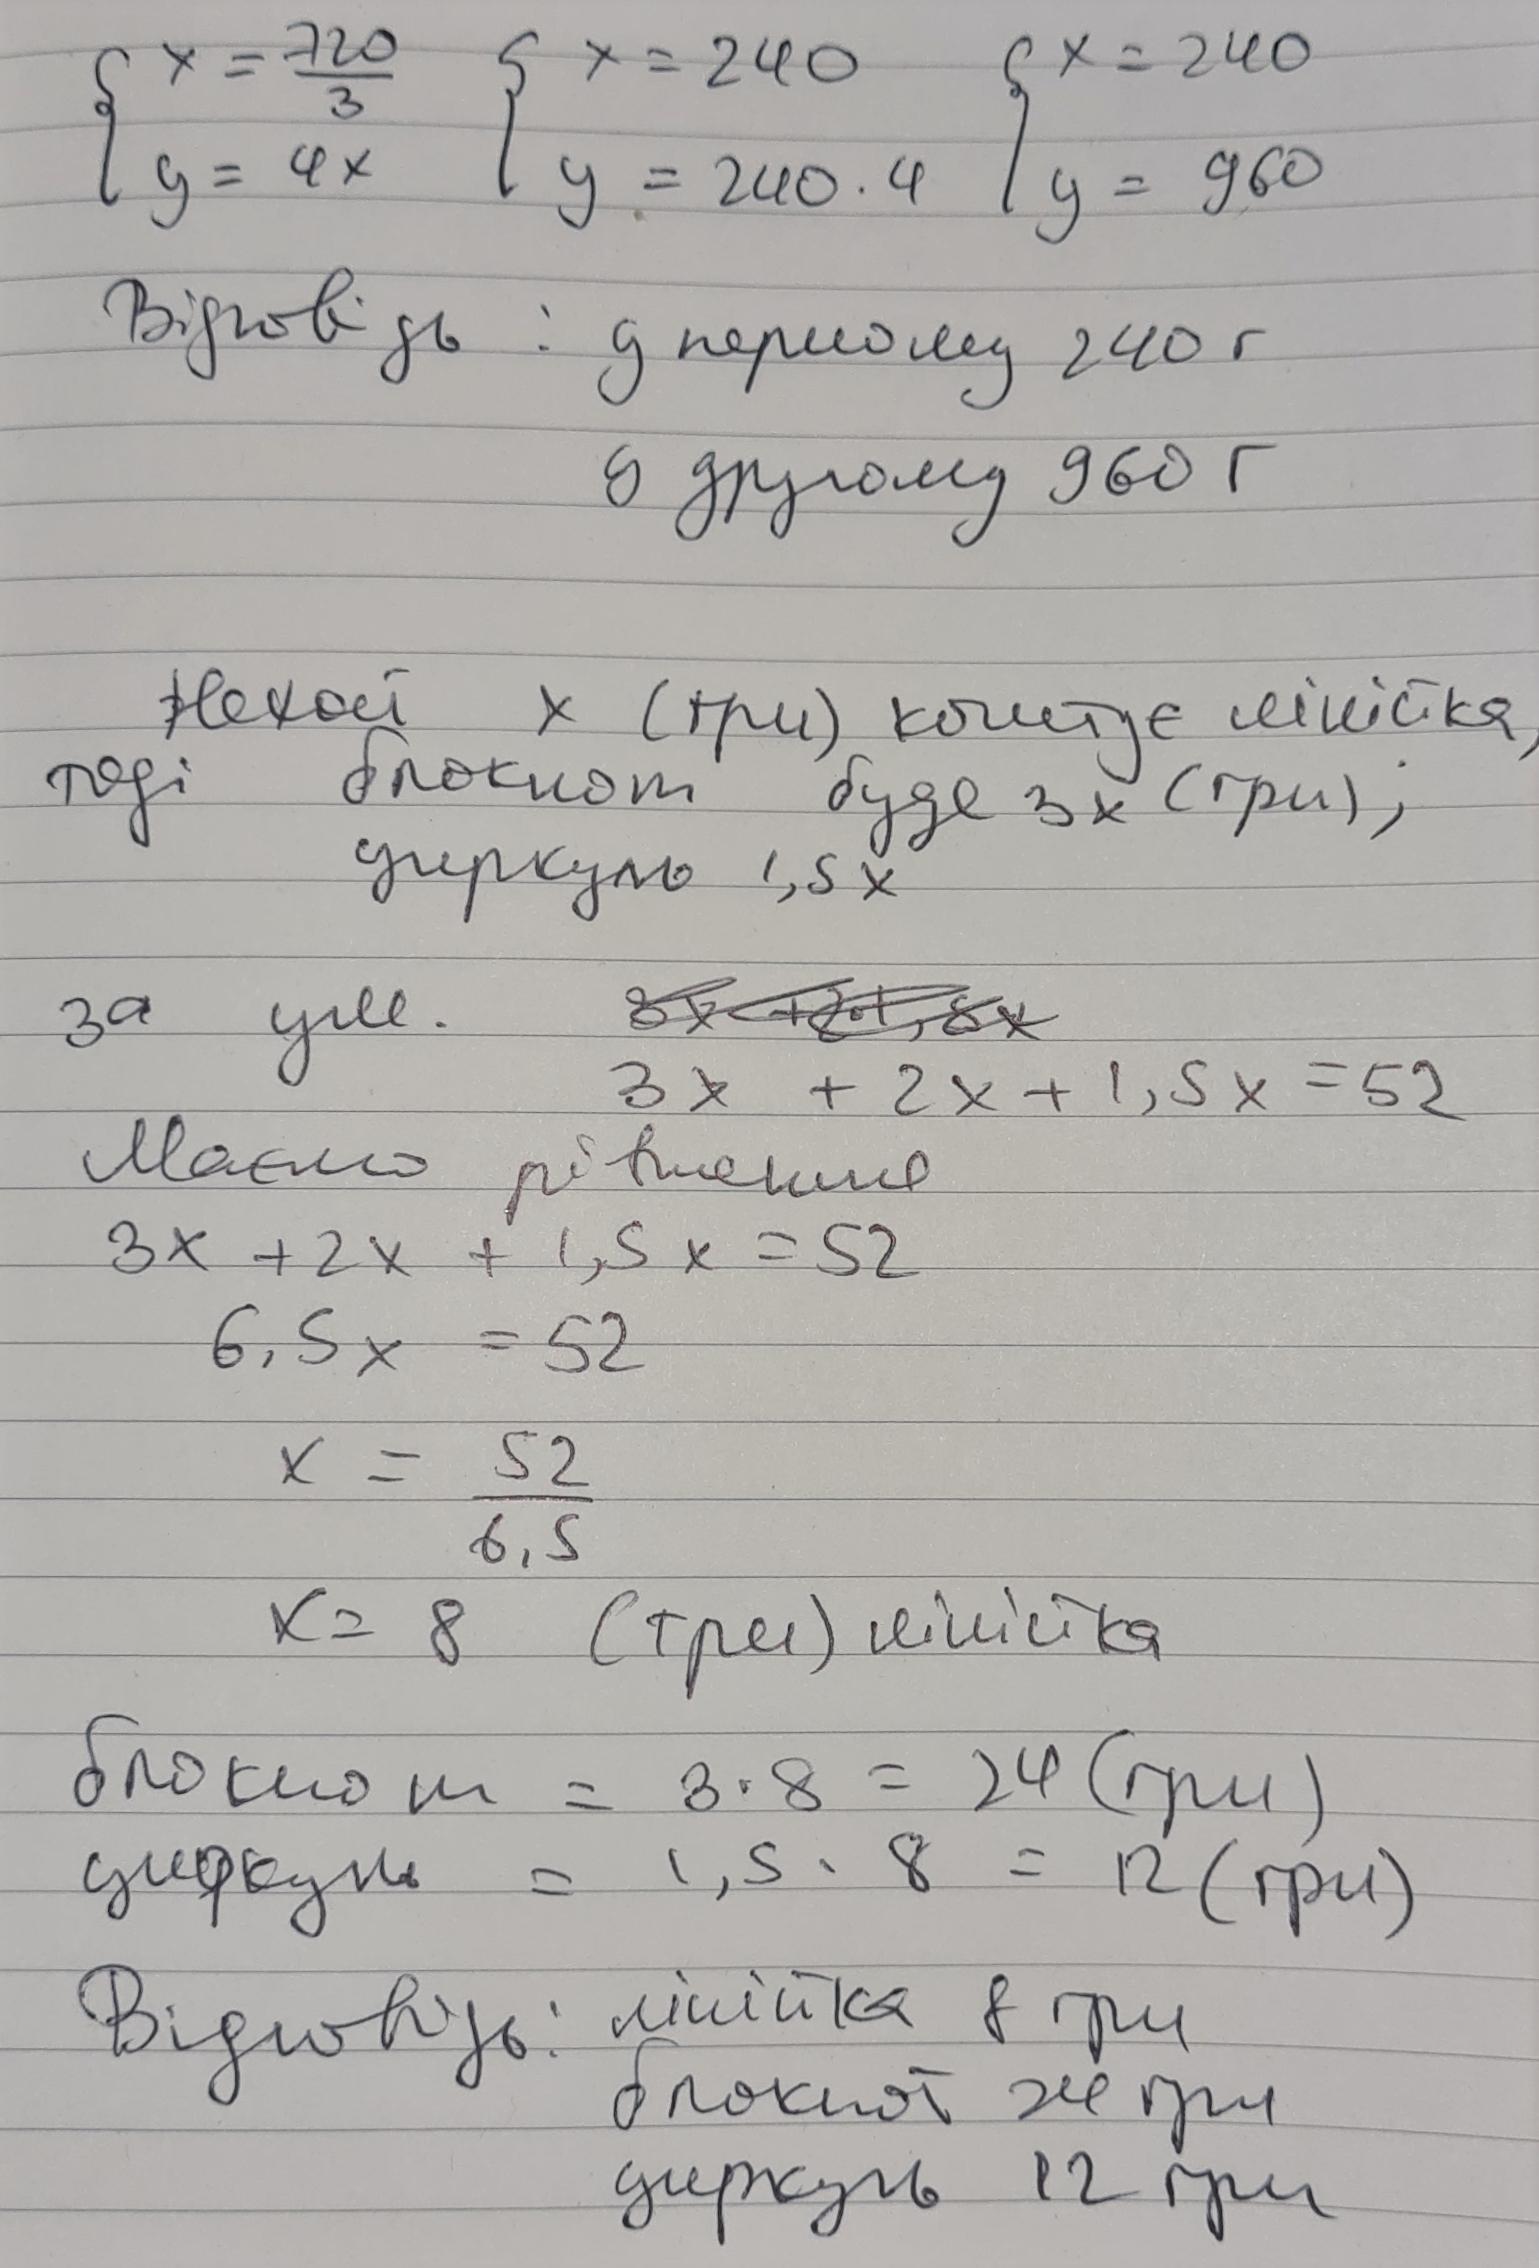 { x = 720/3 { x = 240 { x = 240
y = 4x y = 240 · 4 y = 960
Відповідь : у першому 240 г
в другому 960 г
Нехай x (грн) коштує лінійка,
тоді блокнот буде 3x (грн);
циркуль 1,5x
за ум.
3x + 2x + 1,5x = 52
Маємо рівняння
3x + 2x + 1,5x = 52
6,5x = 52
x = 52/6,5
x = 8 (грн) лінійка
блокнот = 3 · 8 = 24 (грн)
циркуль = 1,5 · 8 = 12 (грн)
Відповідь: лінійка 8 грн
блокнот 24 грн
циркуль 12 грн